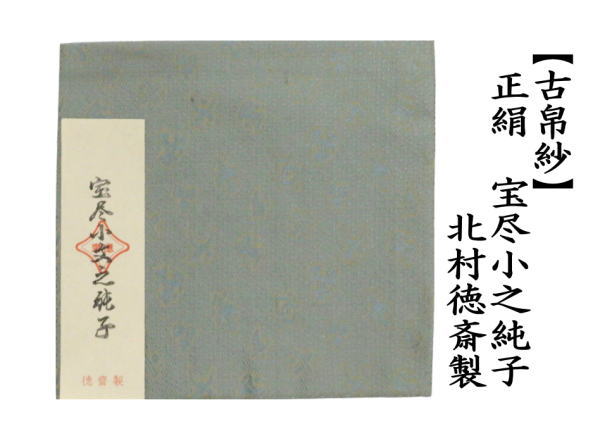 【古帛紗】
正絹　宝尽小之純子
北村徳斎製
宝尽小文之純子
徳齋製